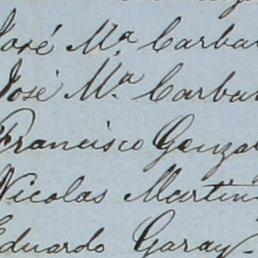 José Mª Carba
José Mª Carba
Francisco Gonza
Nicolas Martin
Eduardo Garay